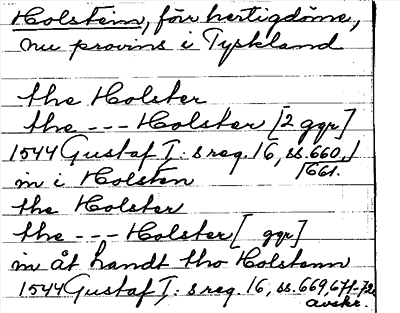 Holstein, förr hertigdöme,
nu provins i Tyskland
the Holster
the --- Holster [2 ggr]
1544 Gustaf I: s reg. 16, ss. 660,
661.
in i Holsten
the Holster
the --- Holster [ ggr]
in åt handt tho Holstenn
1544 Gustaf I: s reg. 16, ss. 669, 671-72,
avskr.